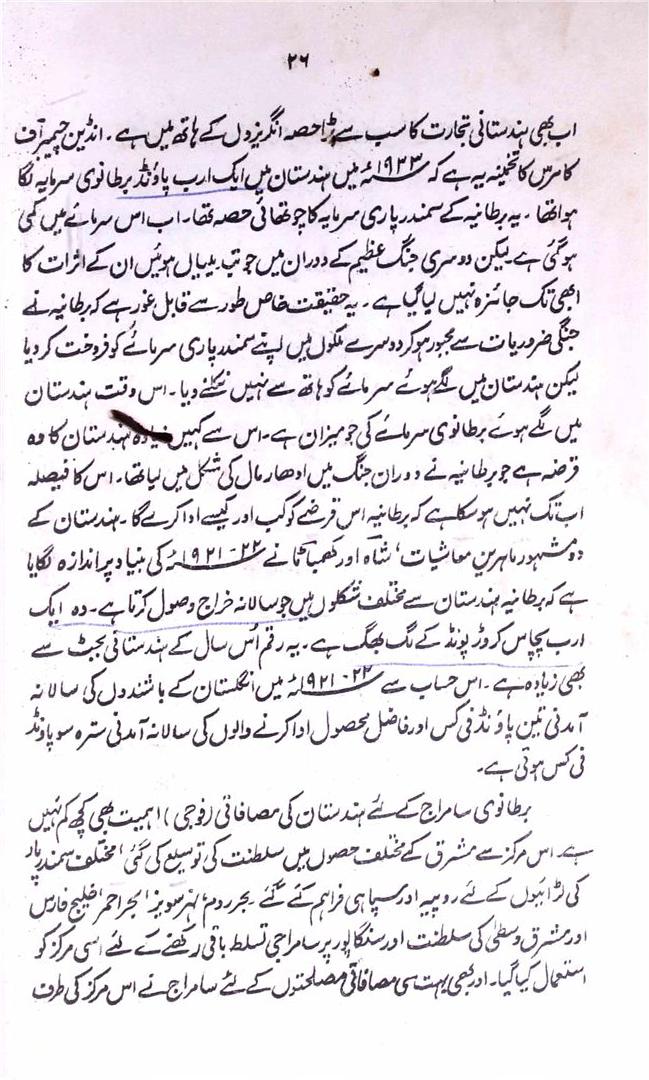 ۲۶
اب بھی ہندستانی تجارت کا سب سے بڑا حصہ انگریزوں کے ہاتھ میں ہے۔ انڈین چیمبر آف
کامرس کا تخمینہ یہ ہے کہ ۱۹۳۳ء میں ہندستان میں ایک ارب پاؤنڈ برطانوی سرمایہ لگا
ہوا تھا۔ یہ برطانیہ کے سمندر پاری سرمایہ کا چوتھائی حصہ تھا۔ اب اس سرمائے میں کمی
ہو گئی ہے لیکن دوسری جنگ عظیم کے دوران میں جو تبدیلیاں ہوئیں ان کے اثرات کا
ابھی تک جائزہ نہیں لیا گیا ہے۔ یہ حقیقت خاص طور سے قابل غور ہے کہ برطانیہ نے
جنگی ضروریات سے مجبور ہو کر دوسرے ملکوں میں اپنے سمندر پاری سرمائے کو فروخت کر دیا
لیکن ہندستان میں لگے ہوئے سرمائے کو ہاتھ سے نہیں نکلنے دیا۔ اس وقت ہندستان
میں لگے ہوئے برطانوی سرمائے کی جو میزان ہے۔ اس سے کہیں زیادہ ہندستان کا وہ
قرضہ ہے جو برطانیہ نے دوران جنگ میں ادھار مال کی شکل میں لیا تھا۔ اس کا فیصلہ
اب تک نہیں ہو سکا ہے کہ برطانیہ اس قرضے کو کب اور کیسے ادا کرے گا۔ ہندستان کے
دو مشہور ماہرین معاشیات، شاہ اور کھمباٹا نے ۲۲-۱۹۲۱ء کی بنیاد پر اندازہ لگایا
ہے کہ برطانیہ ہندستان سے مختلف شکلوں میں جو سالانہ خراج وصول کرتا ہے۔ وہ ایک
ارب پچاس کروڑ پونڈ کے لگ بھگ ہے۔ یہ رقم اُس سال کے ہندستانی بجٹ سے
بھی زیادہ ہے۔ اس حساب سے ۲۲-۱۹۲۱ء میں انگلستان کے باشندوں کی سالانہ
آمدنی تین پاؤنڈ فی کس اور فاضل محصول ادا کرنے والوں کی سالانہ آمدنی سترہ سو پاؤنڈ
فی کس ہوتی ہے۔
برطانوی سامراج کے لئے ہندستان کی مصافاتی (فوجی) اہمیت بھی کچھ کم نہیں
ہے۔ اس مرکز سے مشرق کے مختلف حصوں میں سلطنت کی توسیع کی گئی، مختلف سمندر پار
کی لڑائیوں کے لئے روپیہ اور سپاہی فراہم کئے گئے۔ بحر روم، نہر سویز، بحر احمر، خلیج فارس
اور مشرق وسطیٰ کی سلطنت اور سنگاپور پر سامراجی تسلط باقی رکھنے کے لئے اسی مرکز کو
استعمال کیا گیا۔ اور بھی بہت سی مصافاتی مصلحتوں کے لئے سامراج نے اس مرکز کی طرف